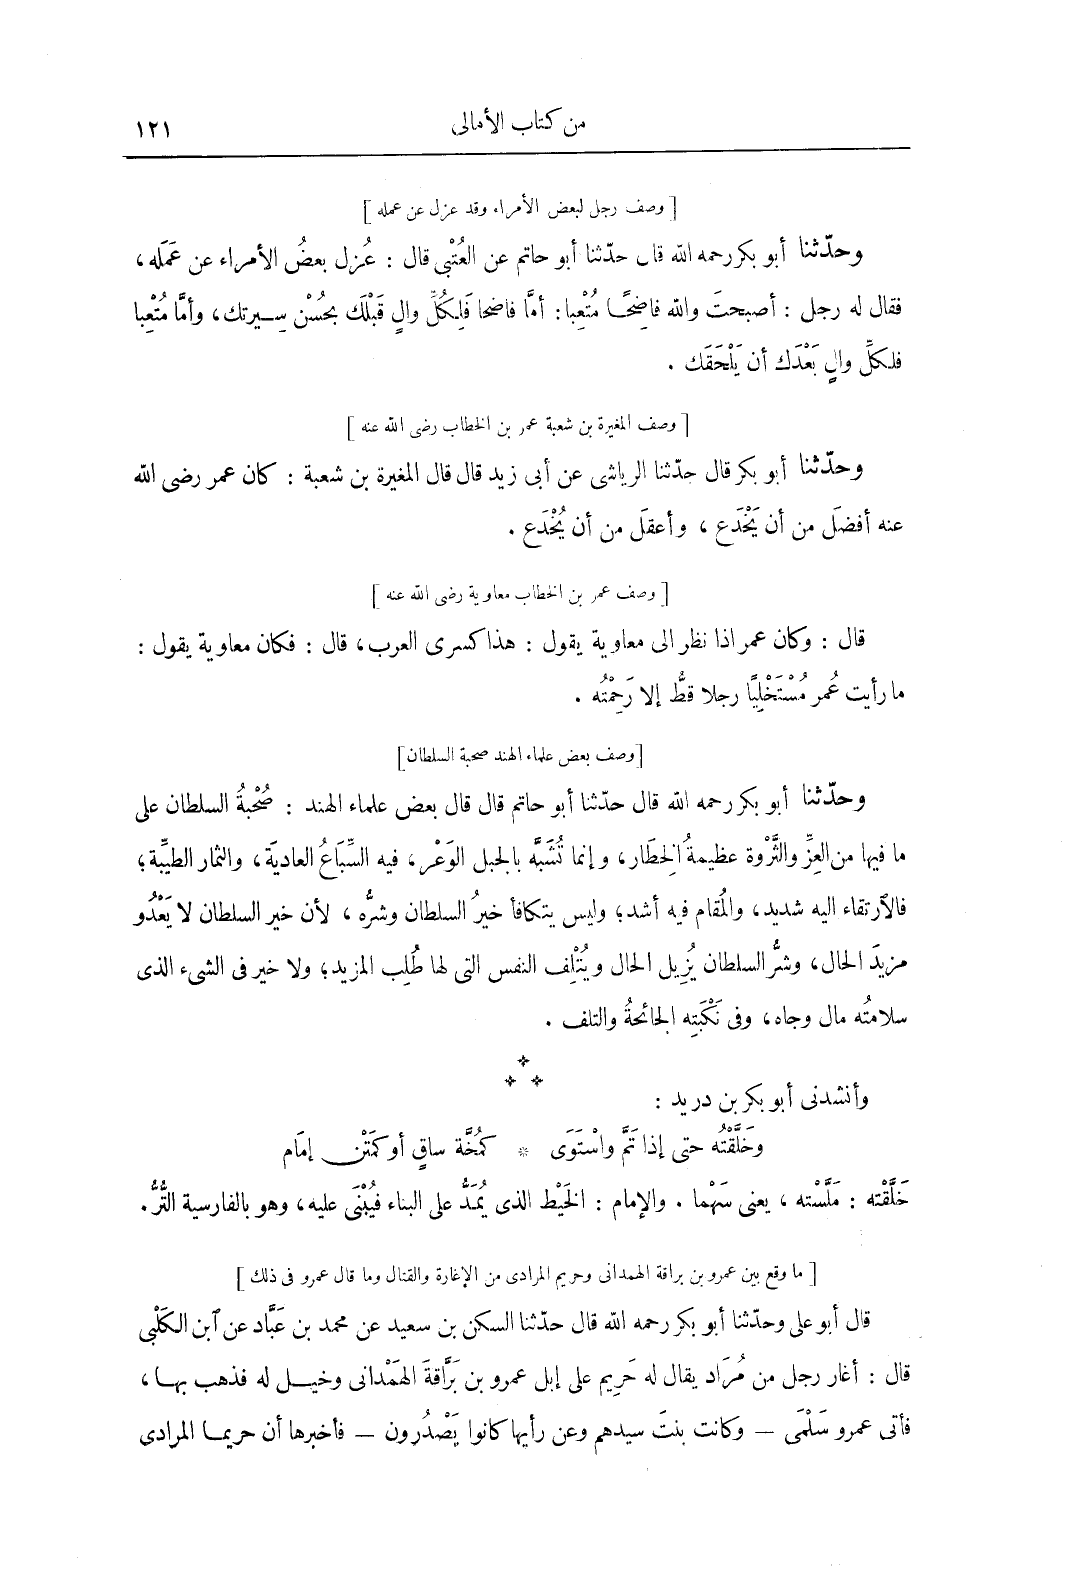 من كتاب الأمالى ١٢١
[ وصف رجل لبعض الأمراء وقد عزل عن عمله ]
وحدّثنا أبو بكر رحمه الله قال حدّثنا أبو حاتم عن العُتْبى قال : عُزل بعضُ الأمراء عن عَمَله ،
فقال له رجل : أصبحتَ والله فاضِحًا مُتْعِبا : أمَّا فاضحا فَلِكُلِّ والٍ قَبْلَك بحُسْن سِيرتك ، وأمَّا مُتْعِبا
فلكلِّ والٍ بَعْدَك أن يَلْحَقَك .
[ وصف المغيرة بن شعبة عمر بن الخطاب رضى الله عنه ]
وحدّثنا أبو بكر قال حدّثنا الرياشى عن أبى زيد قال قال المغيرة بن شعبة : كان عمر رضى الله
عنه أفضلَ من أن يَخْدَع ، وأعقلَ من أن يُخْدَع .
[ وصف عمر بن الخطاب معاوية رضى الله عنه ]
قال : وكان عمر اذا نظر الى معاوية يقول : هذا كسرى العرب ، قال : فكان معاوية يقول :
ما رأيت عُمر مُسْتَخْلِيًا رجلا قطُّ إلا رَحِمْتُه .
[وصف بعض علماء الهند صحبة السلطان]
وحدّثنا أبو بكر رحمه الله قال حدّثنا أبو حاتم قال قال بعض علماء الهند : صُحْبةُ السلطان على
ما فيها من العِزِّ والثَّرْوة عظيمةُ الخِطَار ، وإنما تُشَبَّه بالجبل الوَعْر ، فيه السِّبَاعُ العادية ، والثمار الطيِّبة ؛
فالارتقاء اليه شديد ، والمُقام فيه أشد ؛ وليس يتكافأ خيرُ السلطان وشرُّه ، لأن خير السلطان لا يَعْدُو
مزيدَ الحال ، وشرُّ السلطان يُزِيل الحال ويُتْلِف النفس التى لها طُلِب المزيد ؛ ولا خير فى الشىء الذى
سلامتُه مال وجاه ، وفى نَكْبَتِه الجائحةُ والتلف .
وأنشدنى أبو بكر بن دريد :
وخَلَّقْتُه حتى إذا تَمَّ واسْتَوَى * كمُخَّة ساقٍ أو كمَتْن إمَام
خَلَّقْته : مَلَّسْته ، يعنى سَهْما . والإمام : الخَيْط الذى يُمَدُّ على البناء فيُبْنَى عليه ، وهو بالفارسية التُّرُّ .
[ ما وقع بين عمرو بن براقة الهمدانى وحريم المرادى من الإغارة والقتال وما قال عمرو فى ذلك ]
قال أبو على وحدّثنا أبو بكر رحمه الله قال حدّثنا السكن بن سعيد عن محمد بن عَبَّاد عن ابن الكَلْبى
قال : أغار رجل من مُرَاد يقال له حَرِيم على إبل عمرو بن بَرَّاقةَ الهَمْدانى وخيل له فذهب بها ،
فأتى عمرو سَلْمَى — وكانت بنتَ سيدهم وعن رأيها كانوا يَصْدُرون — فأخبرها أن حريما المرادى